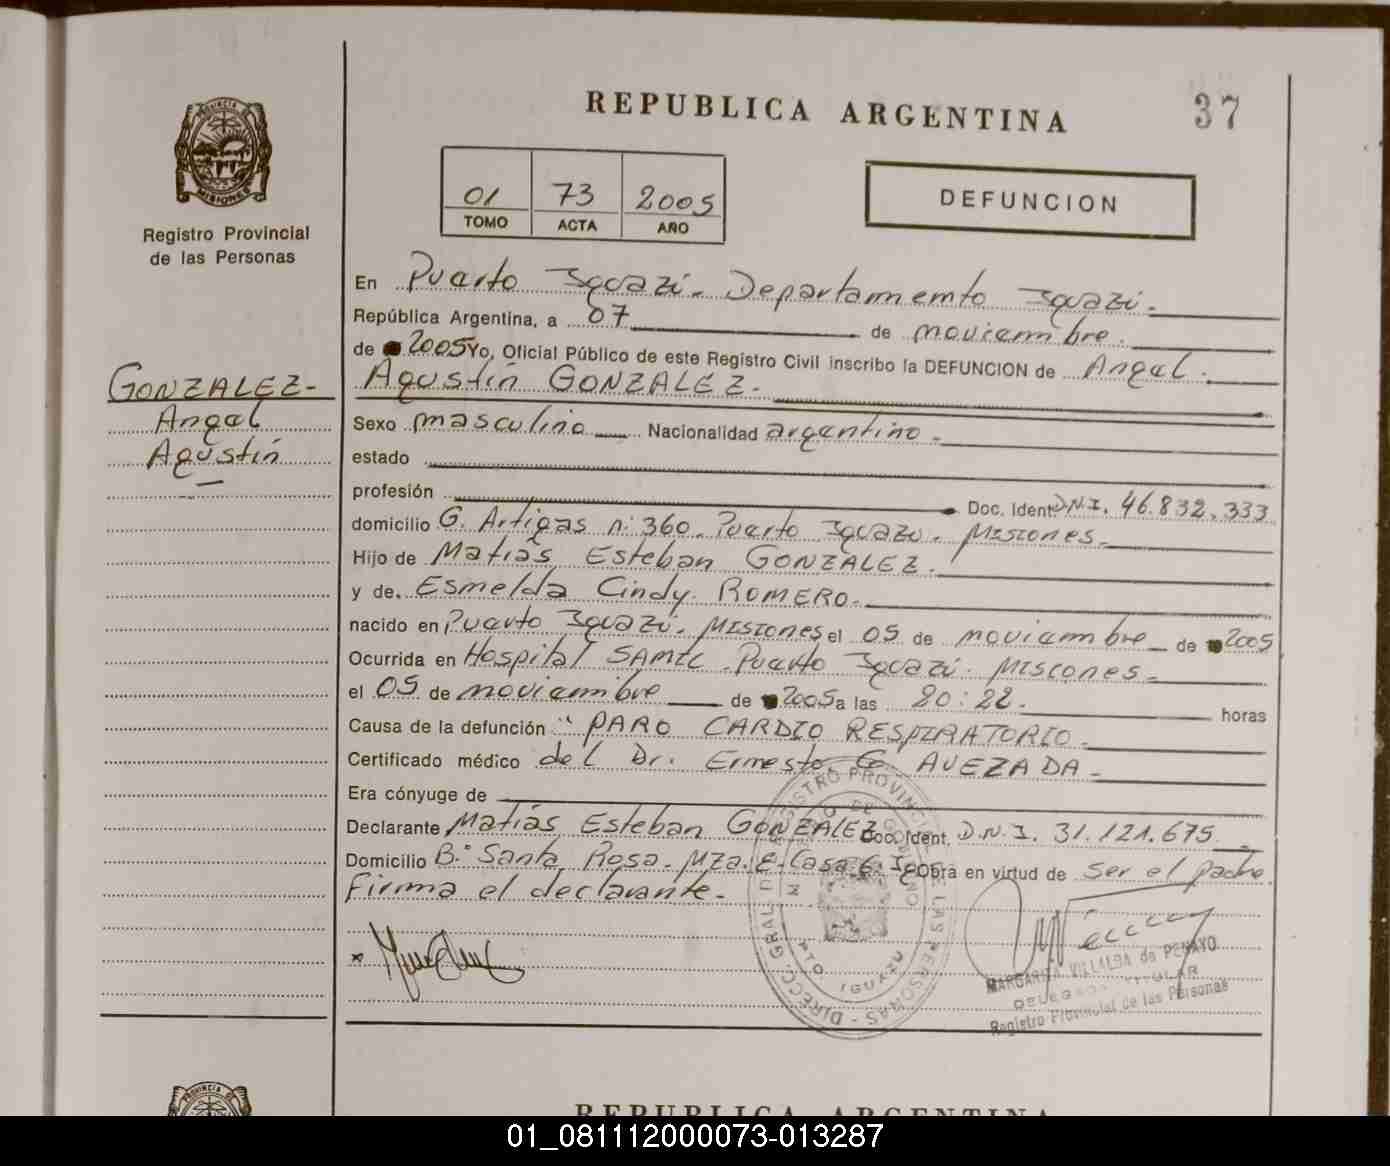 REPUBLICA ARGENTINA
37
PROVINCIA DE
MISIONES
Registro Provincial
de las Personas
01 73 2005
TOMO ACTA AÑO
DEFUNCION
En Puerto Iguazú. Departamento Iguazú.
República Argentina, a 07 de noviembre.
de 2005 Yo, Oficial Público de este Registro Civil inscribo la DEFUNCION de Angel
Agustín GONZALEZ.
GONZALEZ-
Angel
Agustín
Sexo masculino Nacionalidad argentino.
estado
profesión Doc. Ident. D.N.I. 46.832.333
domicilio G. Artigas n: 360. Puerto Iguazu. Misiones.
Hijo de Matías Esteban GONZALEZ.
y de. Esmelda Cindy ROMERO.
nacido en Puerto Iguazú. Misiones el 05 de noviembre de 2005
Ocurrida en Hospital SAMIC. Puerto Iguazú. Misiones.
el 05 de noviembre de 2005 a las 20:22. horas
Causa de la defunción "PARO CARDIO RESPIRATORIO.
Certificado médico del Dr. Ernesto G. AVEZADA.
Era cónyuge de
Declarante Matías Esteban GONZALEZ Doc. Ident. D.N.I. 31.121.675
Domicilio B° Santa Rosa. Mza. E. Casa 6 Ig Obra en virtud de ser el padre.
Firma el declarante.
DIRECC. GRAL. DEL REGISTRO PROVINCIAL DE LAS PERSONAS
IGUAZU
MARGARITA VILLALBA de PENAYO
DELEGADA TITULAR
Registro Provincial de las Personas
PROVINCIA DE
REPUBLICA ARGENTINA
01_081112000073-013287